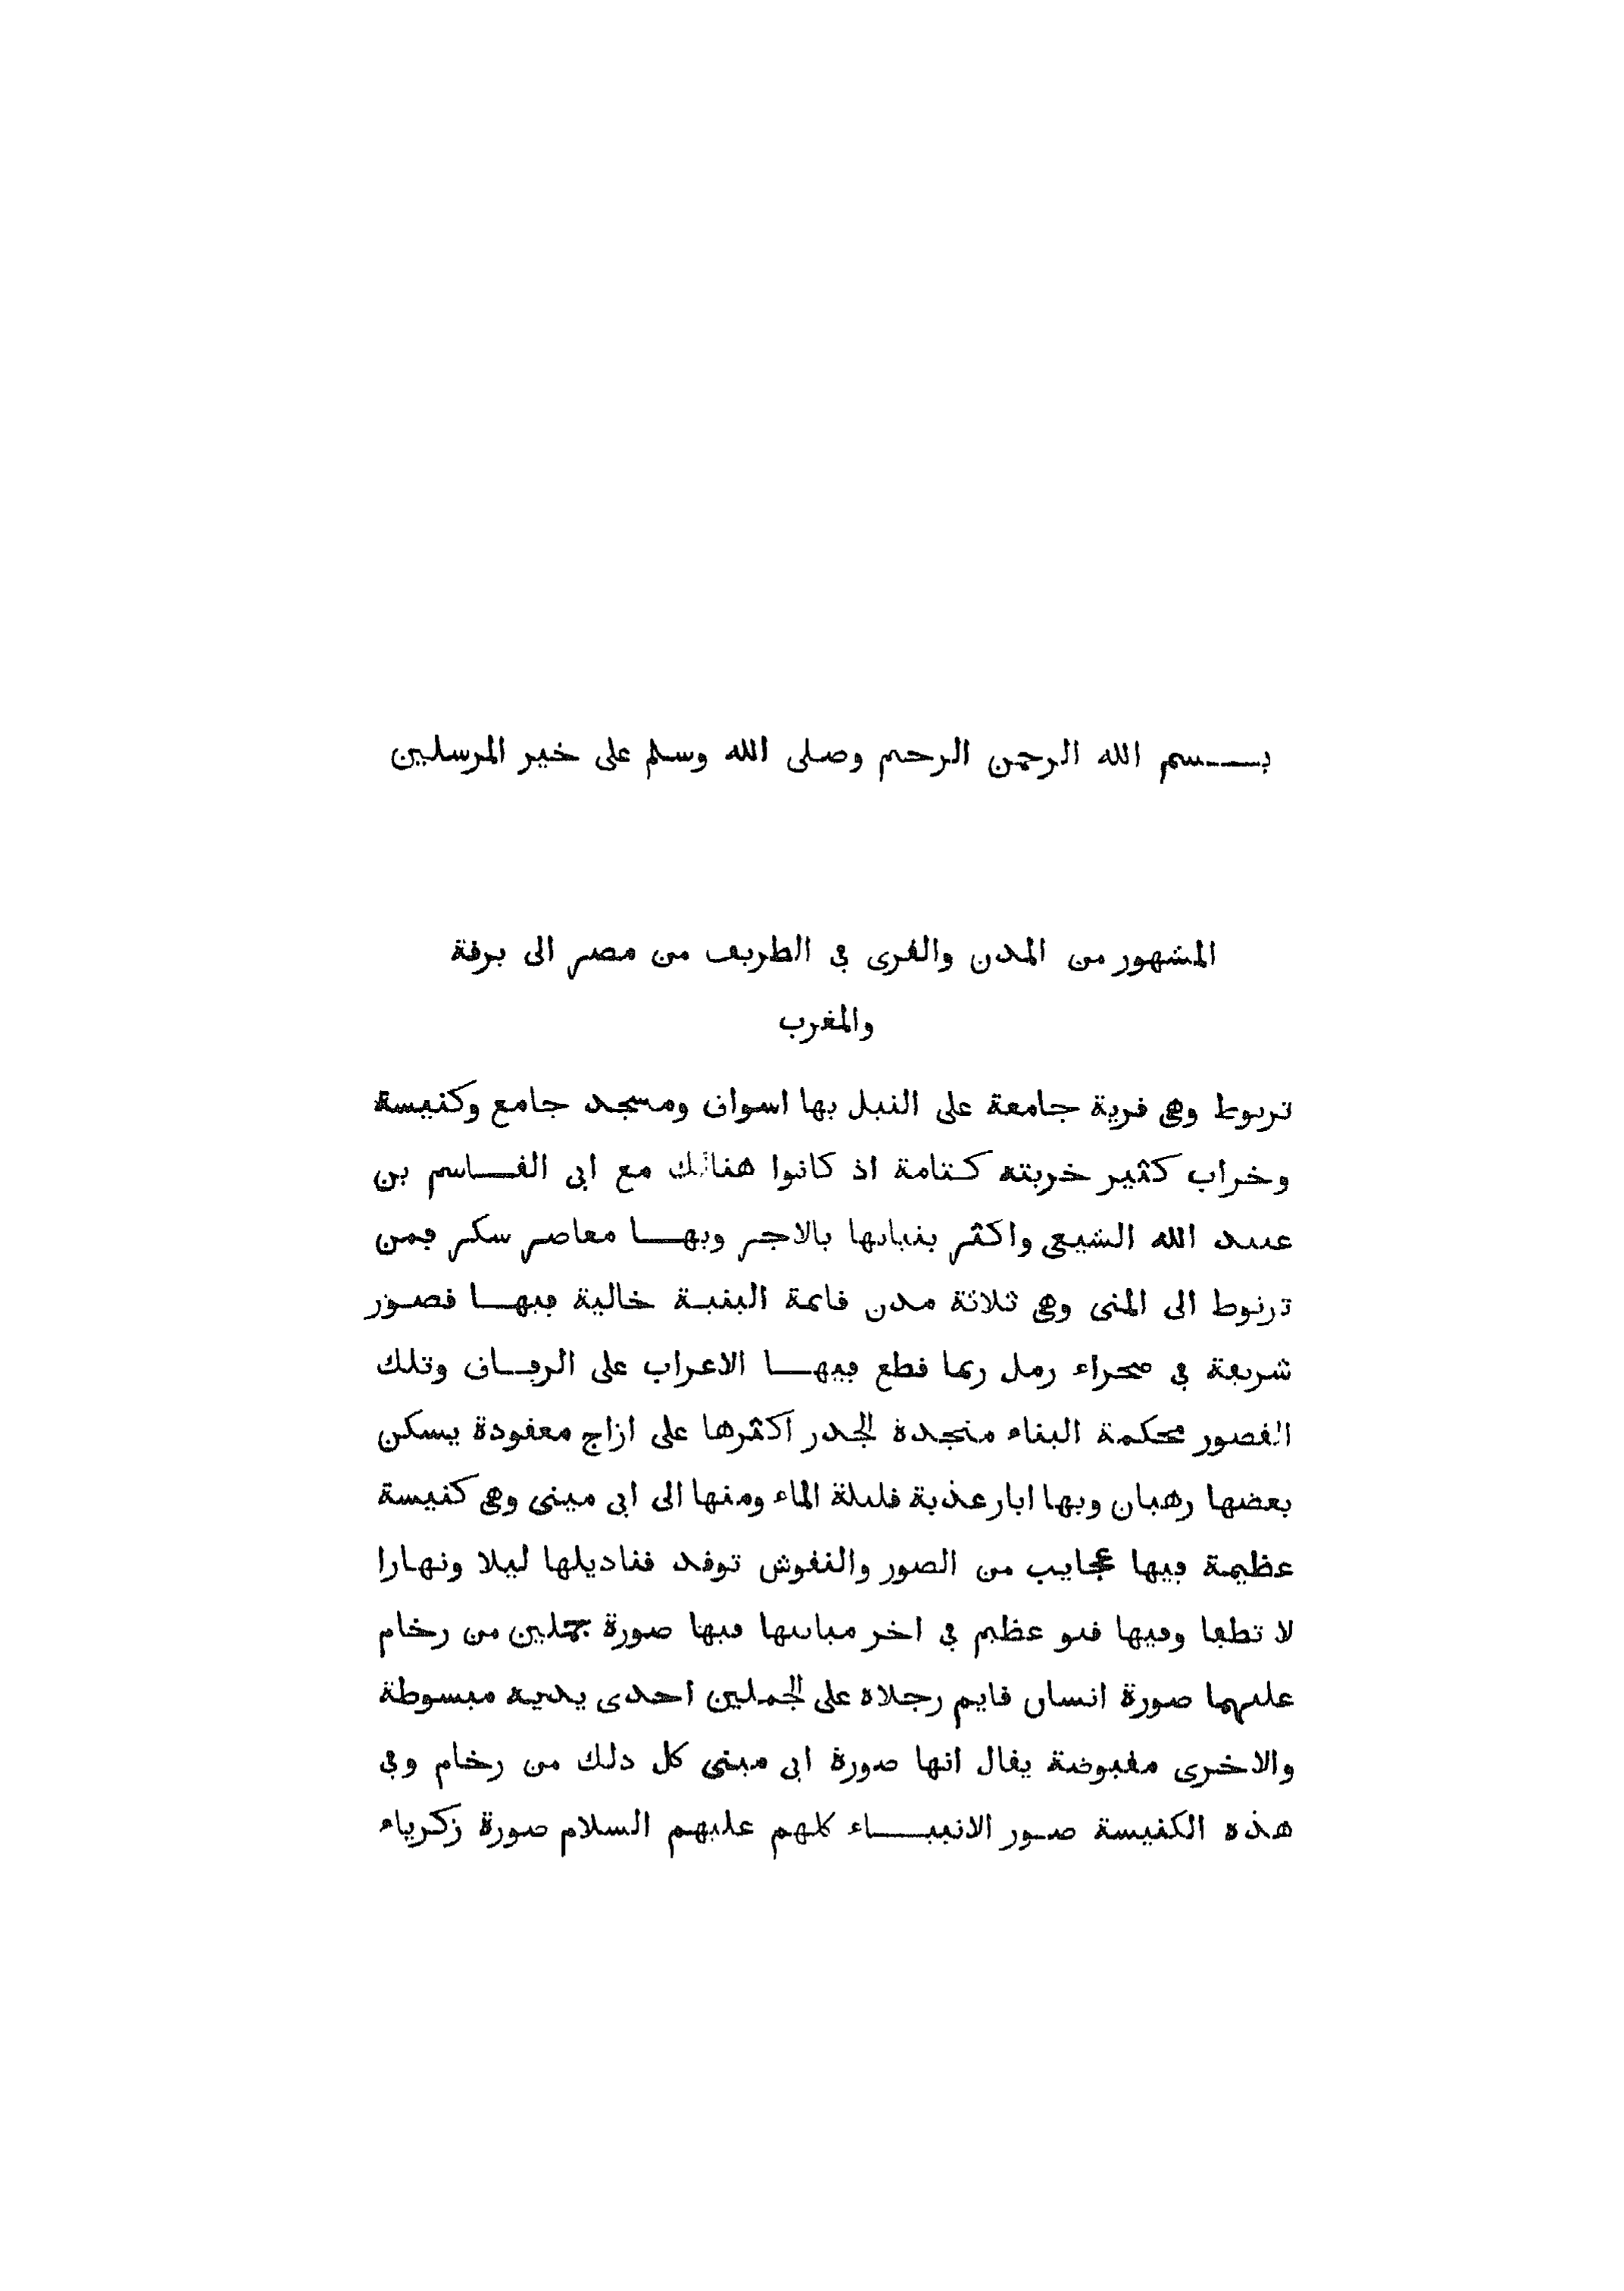 بـــسم الله الرحمن الرحيم وصلى الله وسلم على خير المرسلين
المشهور من المدن والقرى في الطريق من مصر الى برقة
والمغرب
ترنوط وهي قرية جامعة على النيل بها اسواق ومسجد جامع وكنيسة
وخراب كثير خربته كتامة اذ كانوا هنالك مع ابي القـــاسم بن
عبيد الله الشيعي واكثر بنيانها بالاجر وبهـــا معاصر سكر فمن
ترنوط الى المنى وهي ثلاثة مدن قائمة البنية خالية فيهـــا قصور
شريفة في صحراء رمل ربما قطع فيهـــا الاعراب على الرفـــاق وتلك
القصور محكمة البناء منجدة الجدر اكثرها على ازاج معقودة يسكن
بعضها رهبان وبها ابار عذبة قليلة الماء ومنها الى ابي مينى وهي كنيسة
عظيمة فيها عجايب من الصور والنقوش توقد قناديلها ليلا ونهارا
لا تطفا وفيها قبو عظيم في اخر مبانيها فيها صورة جملين من رخام
عليهما صورة انسان قايم رجلاه على الجملين احدى يديه مبسوطة
والاخرى مقبوضة يقال انها صورة ابي مينى كل ذلك من رخام وفي
هذه الكنيسة صور الانبيـــاء كلهم عليهم السلام صورة زكرياء